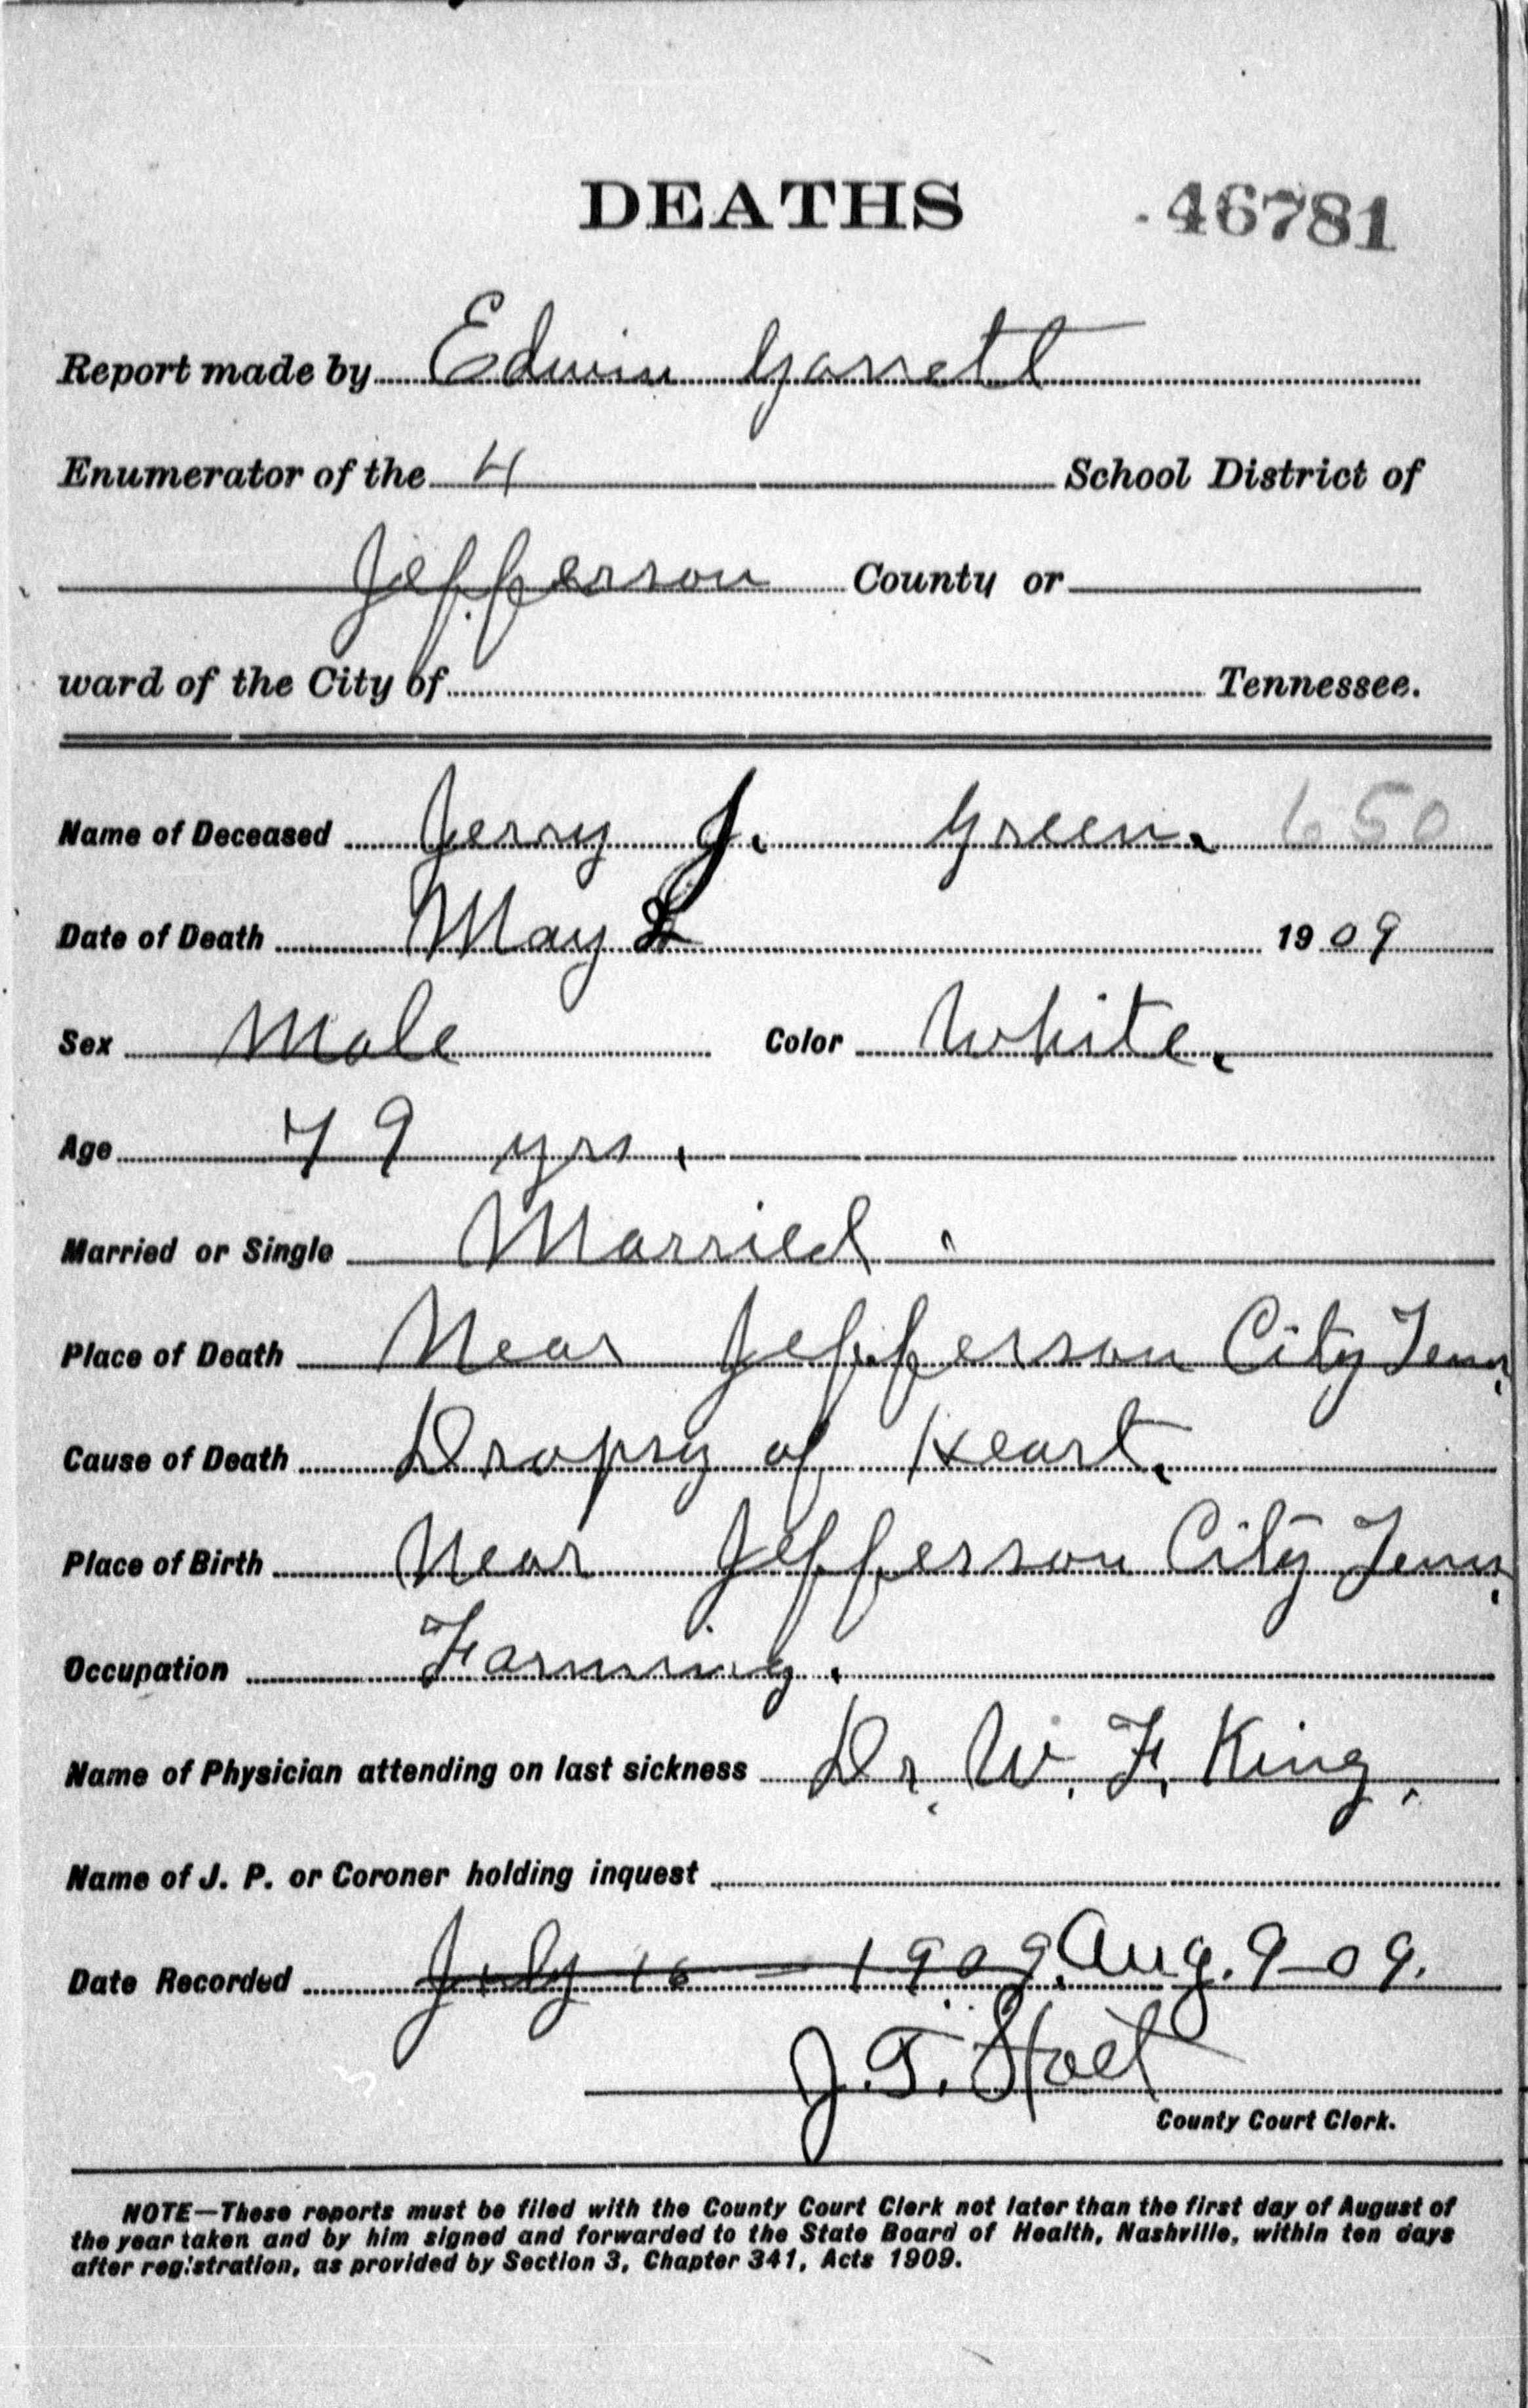 DEATHS 46781
Report made by Edwin Garrett
Enumerator of the 4 School District of
Jefferson County or
ward of the City of Tennessee.
Name of Deceased Jerry J. Green. 650
Date of Death May 1909
Sex Male Color White.
Age 79 yrs.
Married or Single Married.
Place of Death Near Jefferson City Tenn.
Cause of Death Dropsy of Heart.
Place of Birth Near Jefferson City Tenn.
Occupation Farming.
Name of Physician attending on last sickness Dr. W. F. King.
Name of J. P. or Coroner holding inquest
Date Recorded July 16 - 1909. Aug. 9-09.
J. T.
County Court Clerk.
NOTE—These reports must be filed with the County Court Clerk not later than the first day of August of
the year taken and by him signed and forwarded to the State Board of Health, Nashville, within ten days
after registration, as provided by Section 3, Chapter 341, Acts 1909.